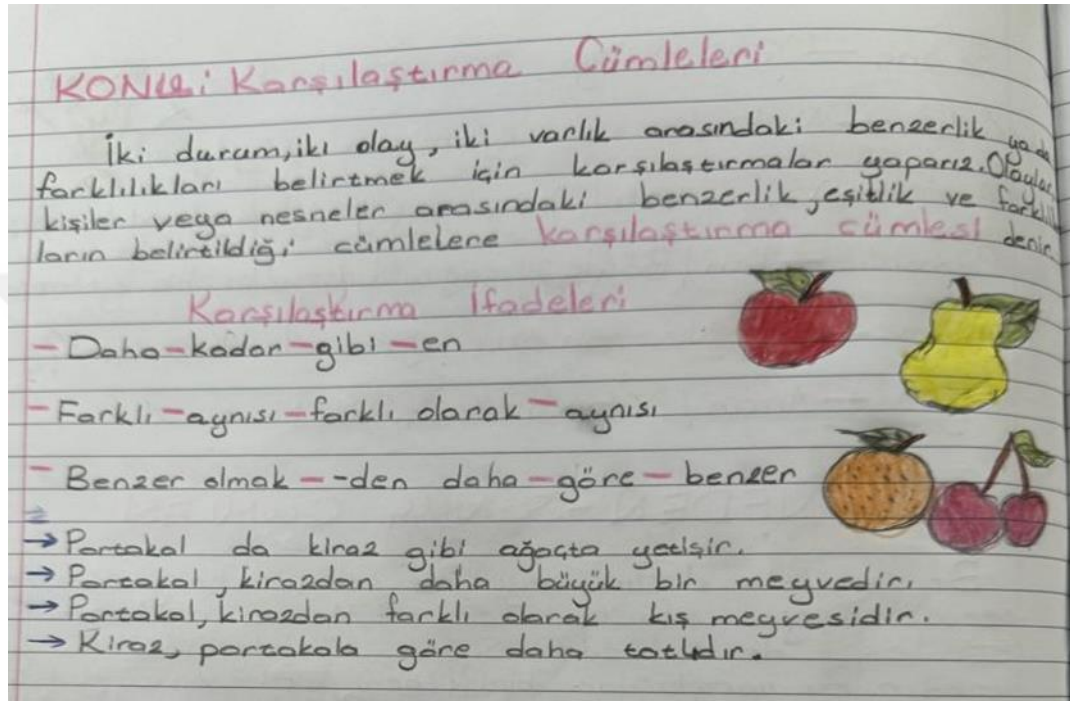 KONU: Karşılaştırma Cümleleri
İki durum, iki olay, iki varlık arasındaki benzerlik ya da
farklılıkları belirtmek için karşılaştırmalar yaparız. Olaylar
kişiler veya nesneler arasındaki benzerlik, eşitlik ve farklılık
ların belirtildiği cümlelere karşılaştırma cümlesi denir.
Karşılaştırma İfadeleri
- Daha - kadar - gibi - en
- Farklı - aynısı - farklı olarak - aynısı
- Benzer olmak - -den daha - göre - benzer
→ Portakal da kiraz gibi ağaçta yetişir.
→ Portakal, kirazdan daha büyük bir meyvedir.
→ Portakal, kirazdan farklı olarak kış meyvesidir.
→ Kiraz, portakala göre daha tatlıdır.